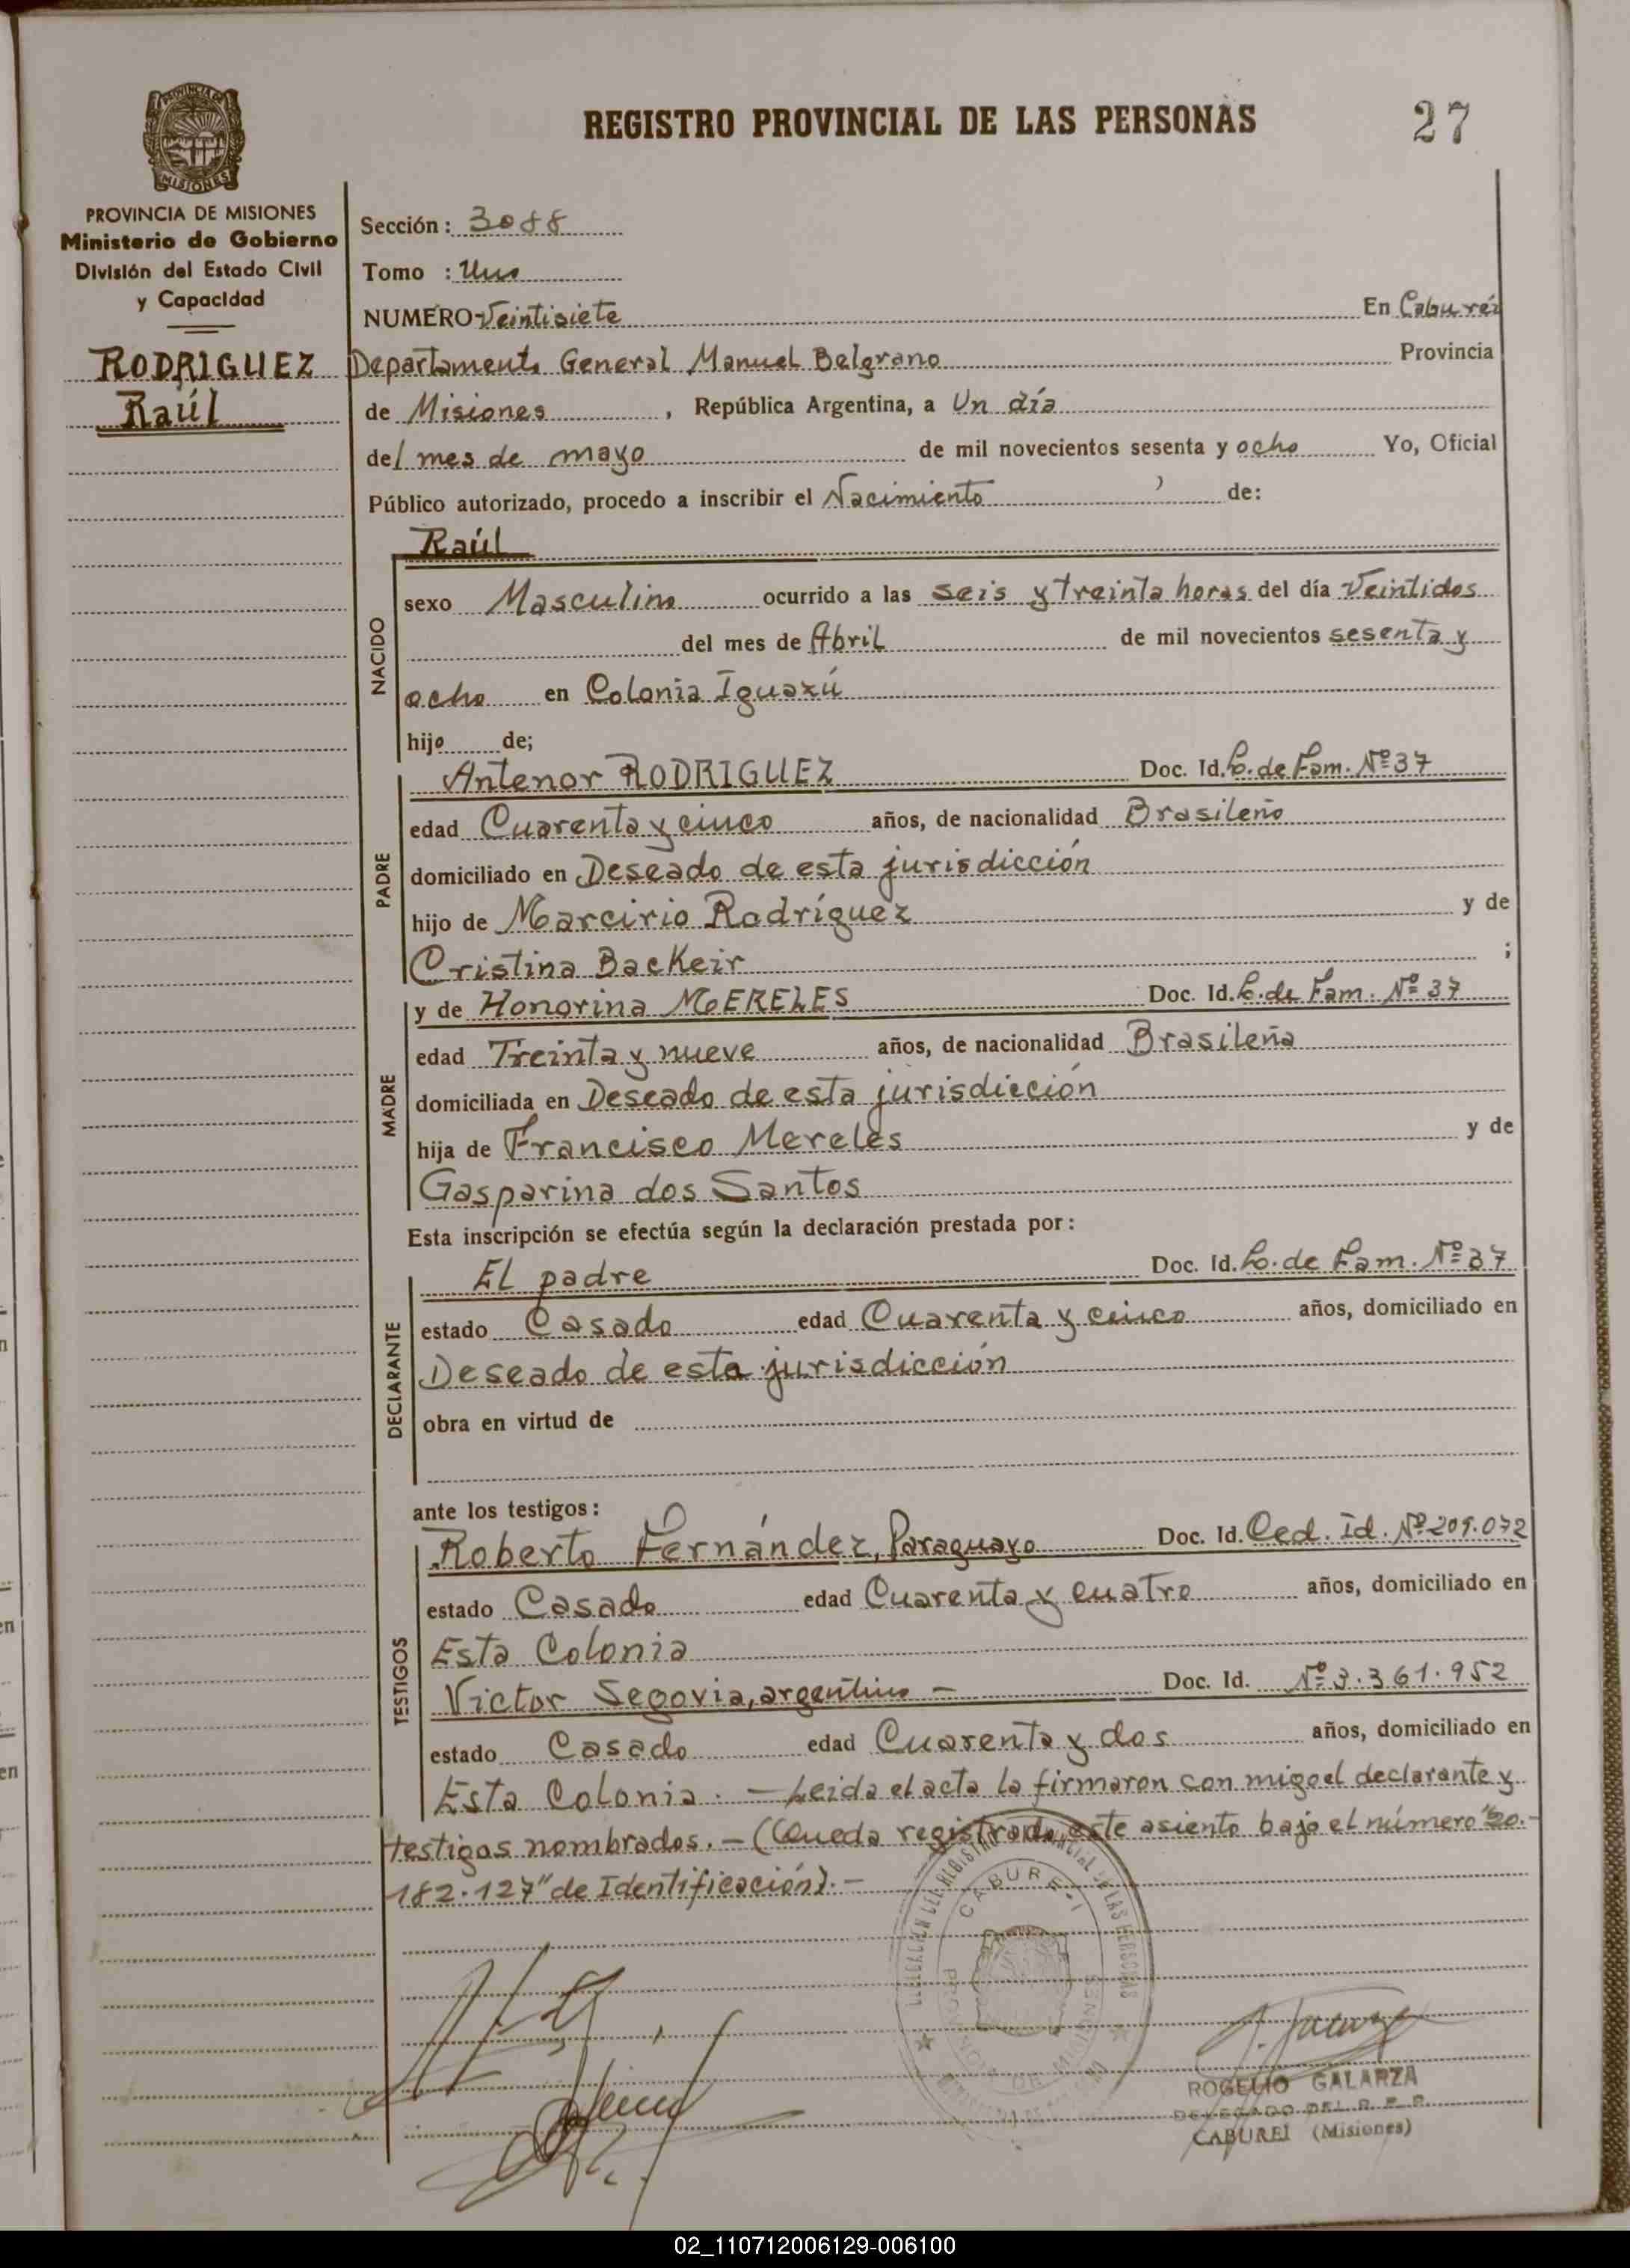 REGISTRO PROVINCIAL DE LAS PERSONAS
27
PROVINCIA DE MISIONES
MISIONES
PROVINCIA DE MISIONES
Ministerio de Gobierno
División del Estado Civil
y Capacidad
RODRIGUEZ
Raúl
Sección: 3088
Tomo : Uno
NUMERO Veintisiete En Caburéi
Departamento General Manuel Belgrano Provincia
de Misiones, República Argentina, a Un día
del mes de mayo de mil novecientos sesenta y ocho Yo, Oficial
Público autorizado, procedo a inscribir el Nacimiento de:
Raúl
NACIDO
sexo Masculino ocurrido a las seis y treinta horas del día Veintidos
del mes de Abril de mil novecientos sesenta y
ocho en Colonia Iguazú
hijo de;
PADRE
Antenor RODRIGUEZ Doc. Id. L. de Fam. Nº 37
edad Cuarenta y cinco años, de nacionalidad Brasileño
domiciliado en Deseado de esta jurisdicción
hijo de Marcirio Rodríguez y de
Cristina Backeir ;
MADRE
y de Honorina MERELES Doc. Id. L. de Fam. Nº 37
edad Treinta y nueve años, de nacionalidad Brasileña
domiciliada en Deseado de esta jurisdicción
hija de Francisco Mereles y de
Gasparina dos Santos
Esta inscripción se efectúa según la declaración prestada por:
DECLARANTE
El padre Doc. Id. L. de Fam. Nº 37
estado Casado edad Cuarenta y cinco años, domiciliado en
Deseado de esta jurisdicción
obra en virtud de
ante los testigos:
TESTIGOS
Roberto Fernández, Paraguayo Doc. Id. Ced. Id. Nº 209.072
estado Casado edad Cuarenta y cuatro años, domiciliado en
Esta Colonia
Victor Segovia, argentino - Doc. Id. Nº 3.361.952
estado Casado edad Cuarenta y dos años, domiciliado en
Esta Colonia. - Leida el acta la firmaron con migo el declarante y
testigos nombrados. - (Queda registrado este asiento bajo el número "20.-
182.127" de Identificación). -
CABURE-I
PROVINCIA DE MISIONES
ROGELIO GALARZA
DELEGADO DEL R. P. P.
CABUREÍ (Misiones)
02_110712006129-006100